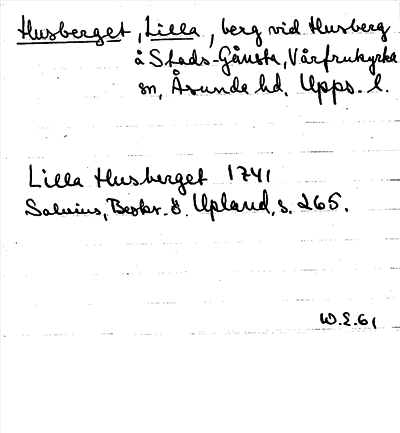 Husberget, Lilla, berg vid Husberg
å Stads-Gånsta, Vårfrukyrka
sn, Åsunda hd. Upps. l.
Lilla Husberget 1741
Salvius, Beskr. ö. Upland, s. 265.
W.E.61